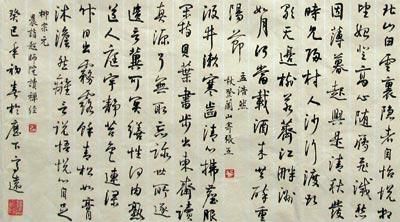 北山白雲裏隱者自怡悅相
望始登高心隨鴈飛滅愁
因薄暮起興是清秋發
時見歸村人沙行渡頭
歇天邊樹若薺江畔洲
如月何當載酒來共醉重
陽節
孟浩然
秋登蘭山寄張五
汲井漱寒齒清心拂塵服
閒持貝葉書步出東齋讀
真源了無取妄跡世所逐
遺言冀可冥繕性何由熟
道人庭宇靜苔色連深
竹日出霧露餘青松如膏
沐澹然離言說悟悅心自足
柳宗元
晨詣超師院讀禪經
癸巳年初春於歷下